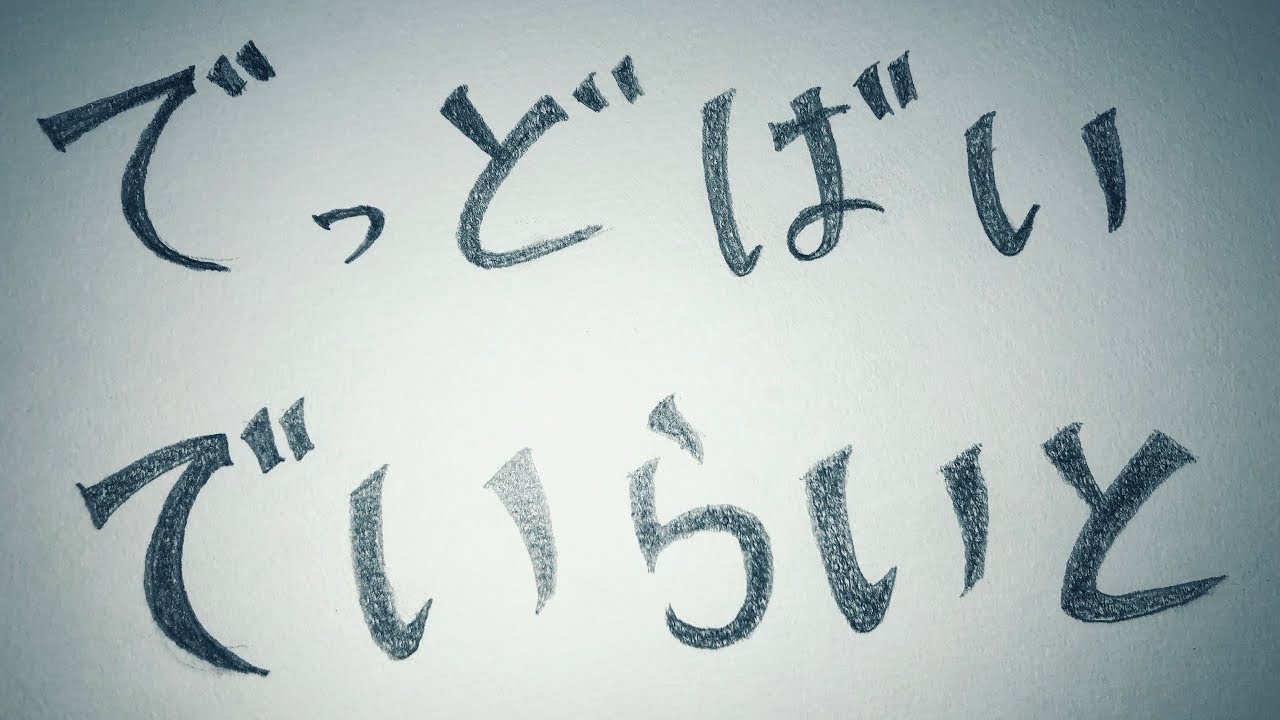 でっどばい
でいらいと